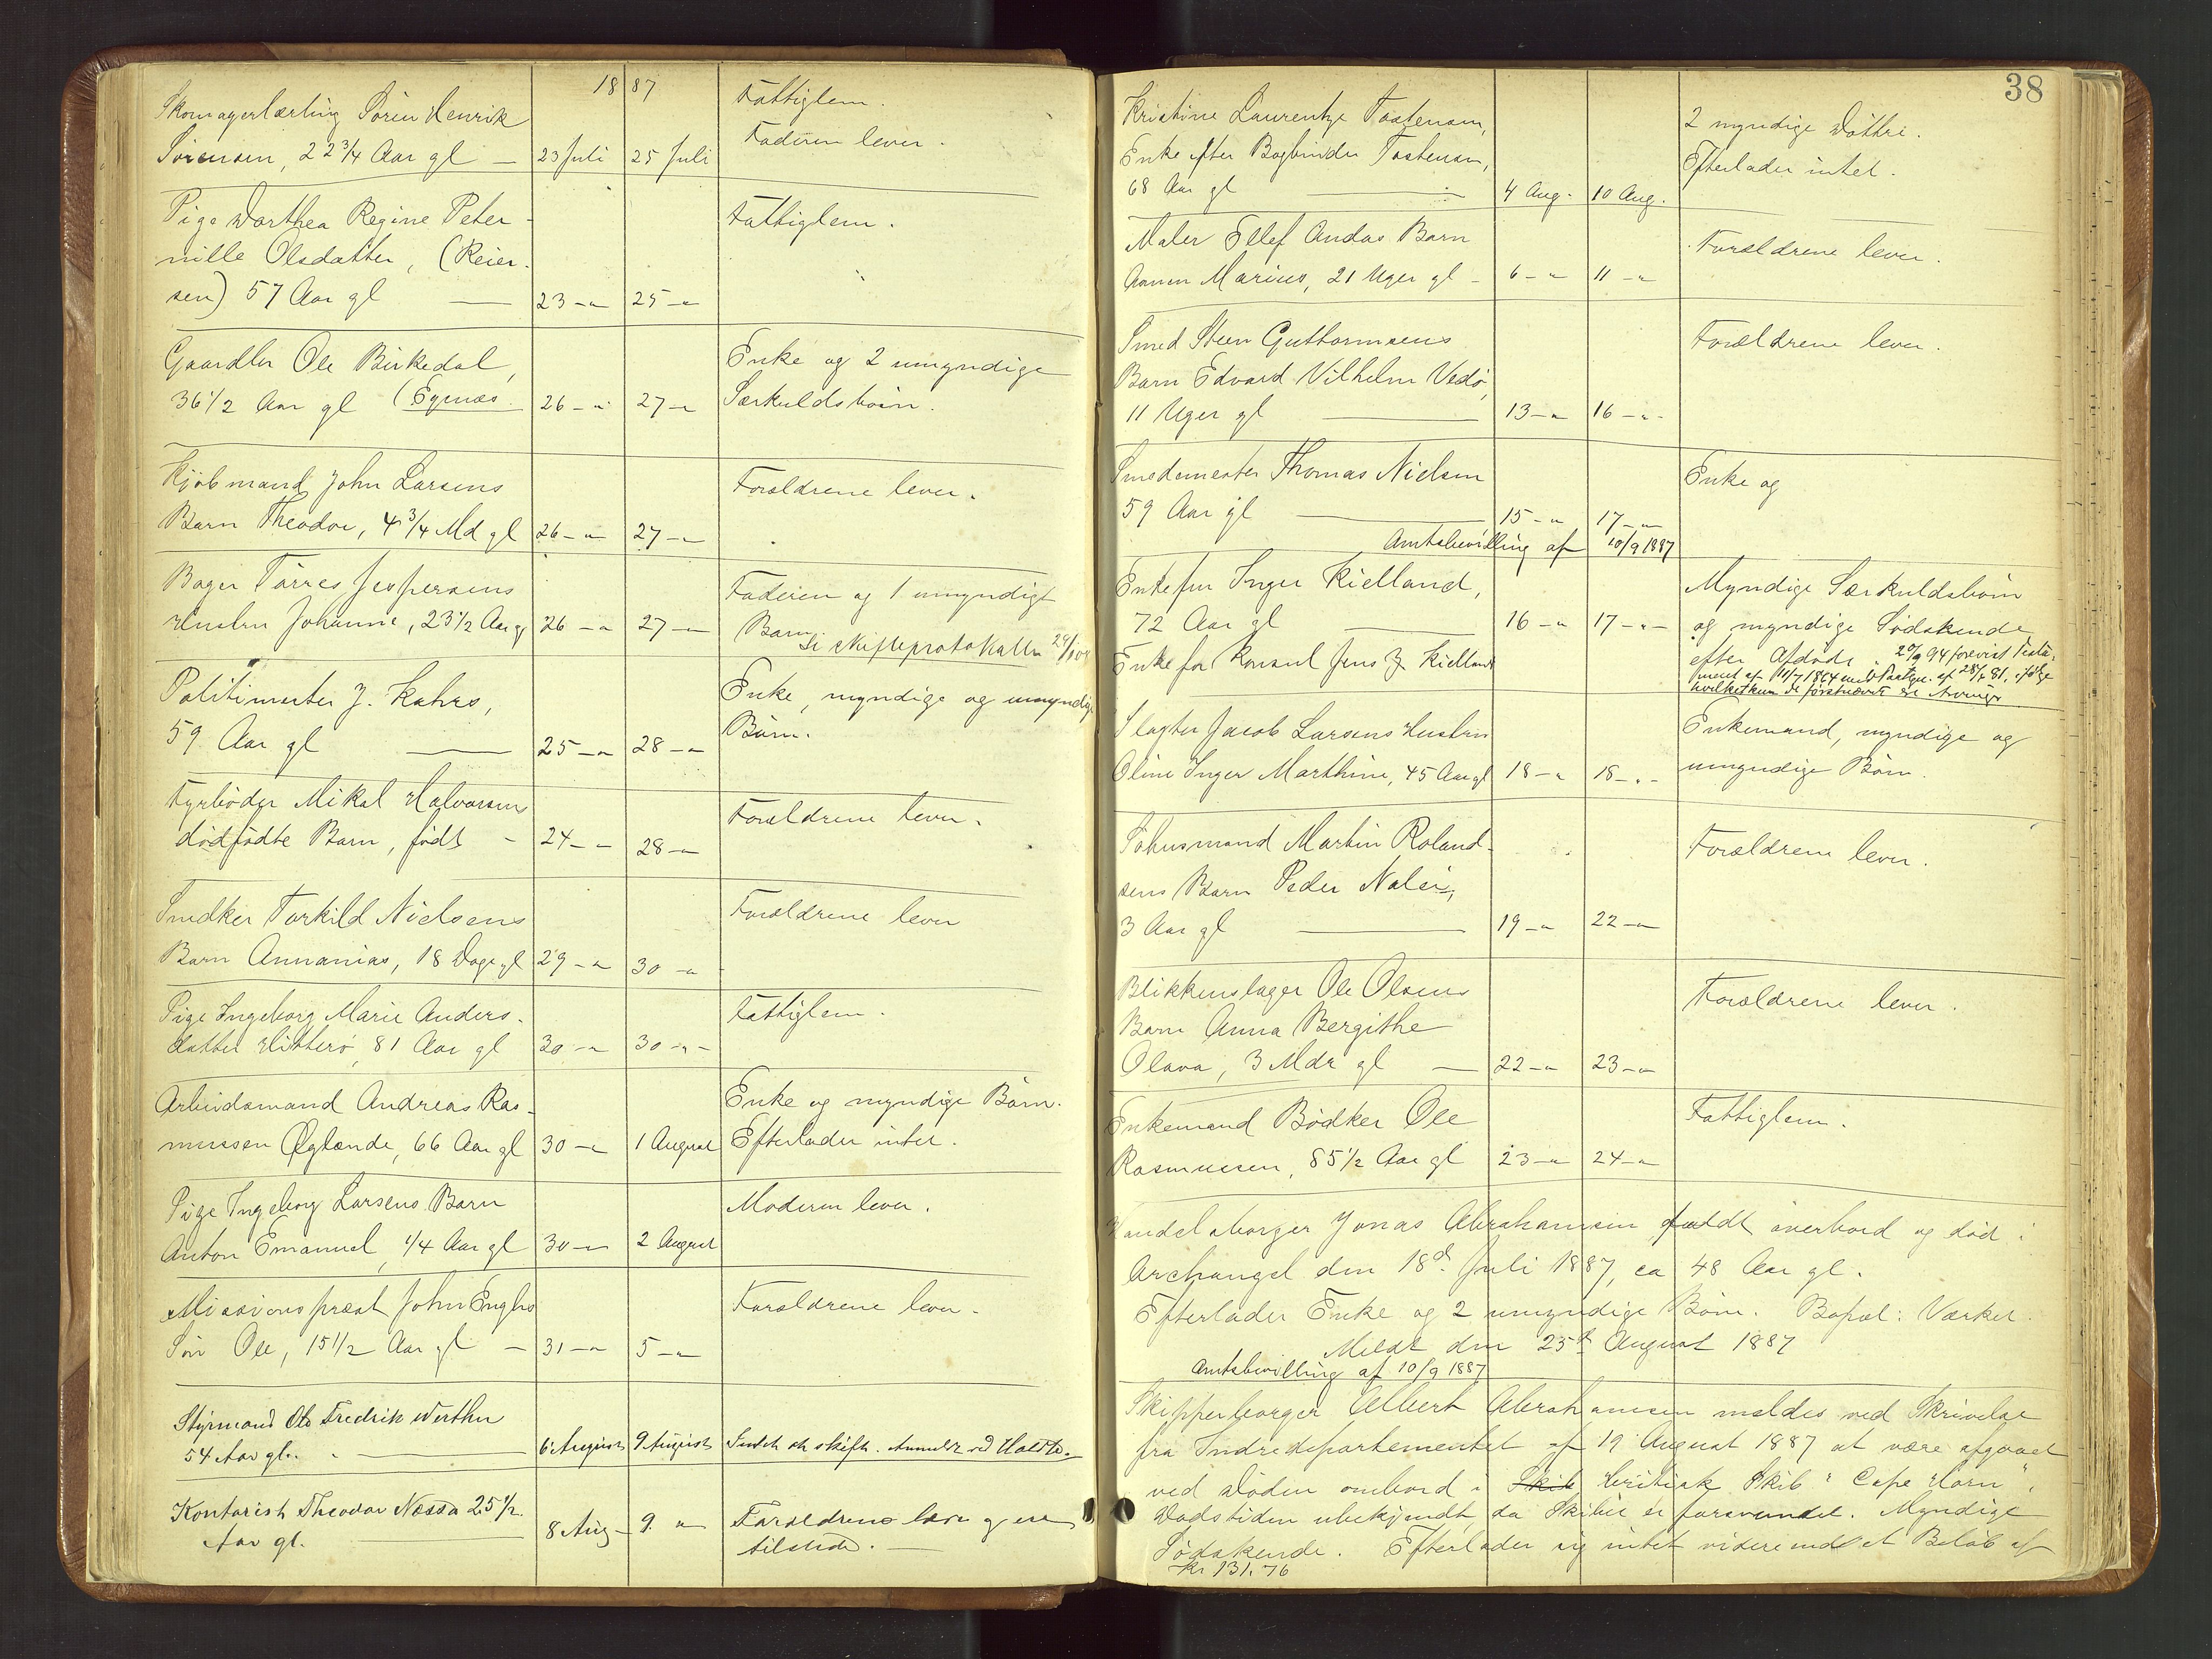 1887
Skomagerlærling Sören Henrik
Sörensen, 22 3/4 Aar gl — 23 Juli 25 Juli
Fattiglem.
Faderen lever.
Pige Dorthea Regine Peter-
nille Olsdatter, (Reier-
sen) 57 Aar gl — 23 — " 25 — "
Fattiglem.
Gaardbr Ole Birkedal,
36 1/2 Aar gl (Egenæs 26 — " 27 — "
Enke og 2 umyndige
Særkuldsbörn.
Kjöbmand John Larsens
Barn Theodor, 4 3/4 Md gl 26 — " 27 — "
Forældrene lever.
Bager Törres Jespersens
Hustru Johanne, 23 1/2 Aar gl 26 — " 27 — "
Faderen og 1 umyndigt
Barn
Se skifteprotokollen
Politimester J. Kahrs,
59 Aar gl — 25 — " 28 — "
Enke, myndige og umyndige
Börn.
Fyrböder Mikal Halvorsens
dödfödte Barn, födt - 24 — " 28 — "
Forældrene lever.
Snedker Torkild Nielsens
Barn Annanias, 18 Dage gl 29 — " 30 — "
Forældrene lever
Pige Ingeborg Marie Anders-
datter Hitterö, 81 Aar gl 30 — " 30 — " -
Fattiglem.
Arbeidsmand Andreas Ras-
mussen Öglænde, 66 Aar gl 30 — " 1 August
Enke og myndige Börn.
Efterlader intet.
Pige Ingeborg Larsens Barn
Anton Emanuel, 1/4 Aar gl 30 — " 2 August
Moderen lever.
Missionspræst John Enghs
Sön Ole, 15 1/2 Aar gl — 31 — " 5 — "
Forældrene lever.
Styrmand Ole Fredrik Werther
54 Aar gl. — 6 August 9 August
skifte. Anmeldt ved
Kontorist Theodor Næssø 25 1/2
Aar gl. — 8 Aug — 9 "
Forældrene lever og ere
tilstede. —
38
Kristine Laurentze Tostensen,
Enke efter Bogbinder Tostensen,
68 Aar gl — 4 Aug. 10 Aug.
2 myndige Döttre.
Efterlader intet.
Maler Ellef Andas Barn
Marius, 21 Uger gl - 6 — " 11 — "
Forældrene lever.
Smed Steen Guttormsens
Barn Edvard Vilhelm Vedö,
11 Uger gl — 13 — " 16 — "
Forældrene lever.
Smedemester Thomas Nielsen
59 Aar gl — 15 — " 17 — "
Enke og
Amtsbevilling af 10/9 1887
Enkefru Inger Kielland,
72 Aar gl — 16 — " 17 — " -
Enke for Konsul Jens Z Kielland
Myndige Særkuldsbörn
og myndige Södskende
efter Afdöde. 20/9 94 forevist Testa-
ment af 11/7 1864 med af 28/2 81, ifölge
hvilket kun de förstnævnte ere Arvinger
Slagter Jacob Larsens Hustru
Oline Inger Marthine, 45 Aar gl 18 — " 18 — " -
Enkemand, myndige og
umyndige Börn.
Söhusmand Martin Roland-
sens Barn Peder Nalei,
3 Aar gl — 19 — " 22 — "
Forældrene lever.
Blikkenslager Ole Olsens
Barn Anna Bergithe
Olava, 3 Mdr gl — 22 — " 23 — "
Forældrene lever.
Enkemand Bödker Ole
Rasmussen, 85 1/2 Aar gl 23 — " 24 — "
Fattiglem.
Handelsborger Jonas Abrahamsen faldt overbord og död i
Archangel den 18d. Juli 1887, ca 48 Aar gl.
Efterlader Enke og 2 umyndige Börn. Bopæl: Værket.
Meldt den 25de August 1887
Amtsbevilling af 10/9 1887
Skipperborger Albert Abrahamsen meldes ved Skrivelse
fra Indredepartementet af 19 August 1887 at være afgaaet
ved Döden ombord i Skib britisk Skib "Cape Horn",
Dödstiden ubekjendt, da Skibet er forsvundet. Myndige
Södskende. Efterlader sig intet videre end et Belöb af
Kr 131.76